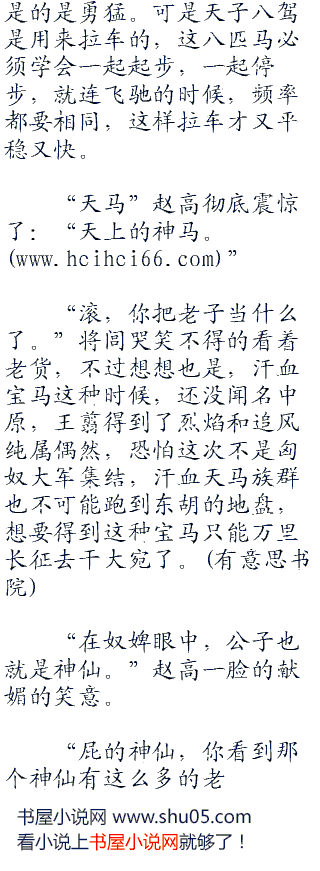 是的是勇猛。可是天子八驾
是用来拉车的，这八匹马必
须学会一起起步，一起停
步，就连飞驰的时候，频率
都要相同，这样拉车才又平
稳又快。
“天马”赵高彻底震惊
了：“天上的神马。
(www.hcihci66.com)”
“滚，你把老子当什么
了。”将闾哭笑不得的看着
老货，不过想想也是，汗血
宝马这种时候，还没闻名中
原，王翦得到了烈焰和追风
纯属偶然，恐怕这次不是匈
奴大军集结，汗血天马族群
也不可能跑到东胡的地盘，
想要得到这种宝马只能万里
长征去干大宛了。(有意思书
院)
“在奴婢眼中，公子也
就是神仙。”赵高一脸的献
媚的笑意。
“屁的神仙，你看到那
个神仙有这么多的老
书屋小说网 www.shu05.com
看小说上书屋小说网就够了！